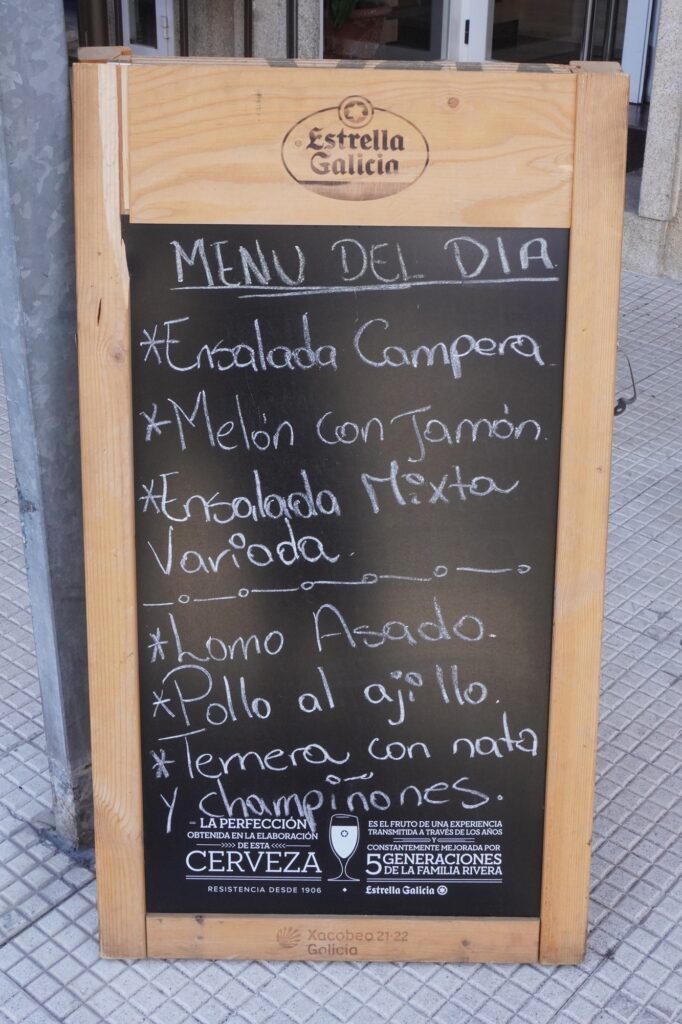 Estrella
Galicia
MENU DEL DIA
*Ensalada Campera
*Melón con Jamón.
*Ensalada Mixta
Variada.
*Lomo Asado.
*Pollo al ajillo.
*Ternera con nata
y champiñones.
LA PERFECCIÓN
OBTENIDA EN LA ELABORACIÓN
DE ESTA
CERVEZA
RESISTENCIA DESDE 1906
ES EL FRUTO DE UNA EXPERIENCIA
TRANSMITIDA A TRAVÉS DE LOS AÑOS
Y
CONSTANTEMENTE MEJORADA POR
5 GENERACIONES
DE LA FAMILIA RIVERA
Estrella Galicia
Xacobeo 21·22
Galicia